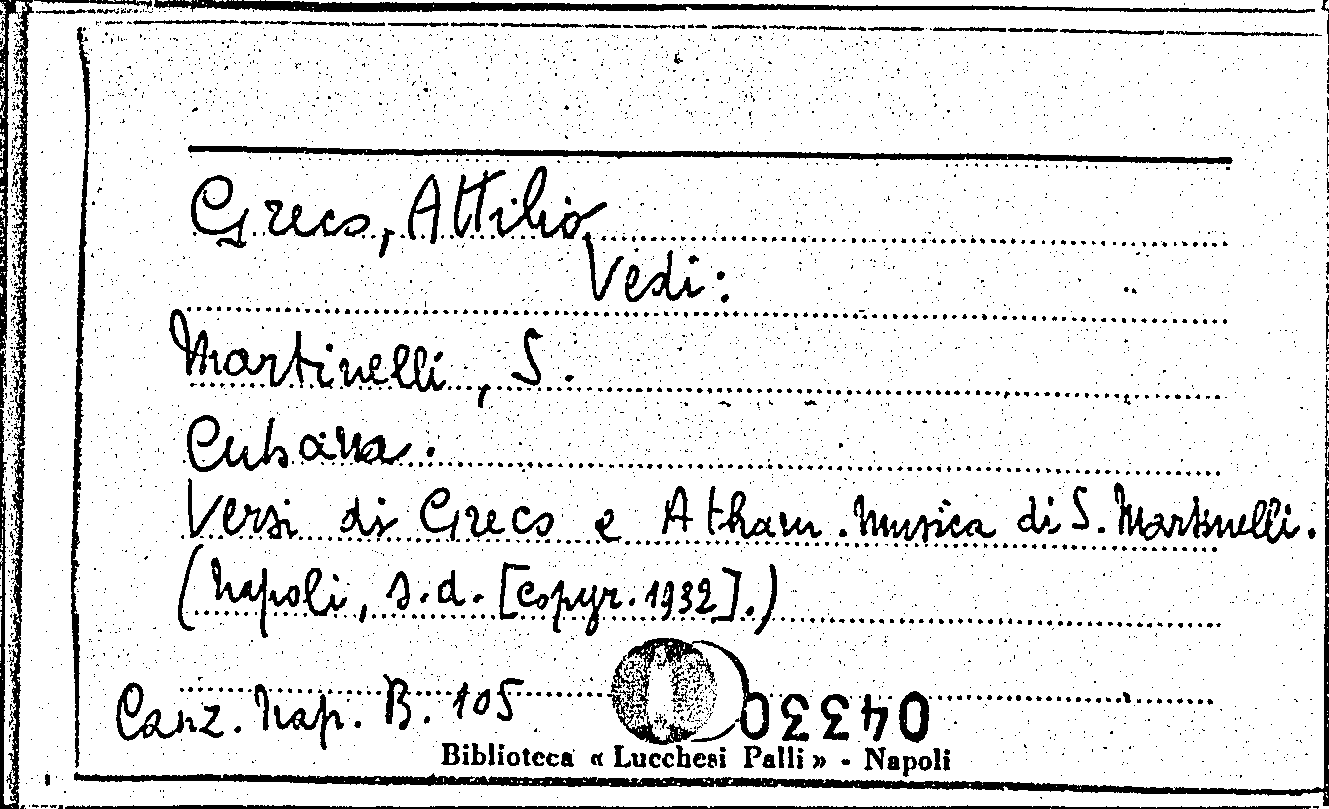 Greco, Attilio
Vedi:
Martinelli, S.
Cubana.
Versi di Greco e Atham. Musica di S. Martinelli.
(Napoli, s.d. [copyr. 1932].)
Canz. Nap. B. 105
04330
Biblioteca « Lucchesi Palli » - Napoli